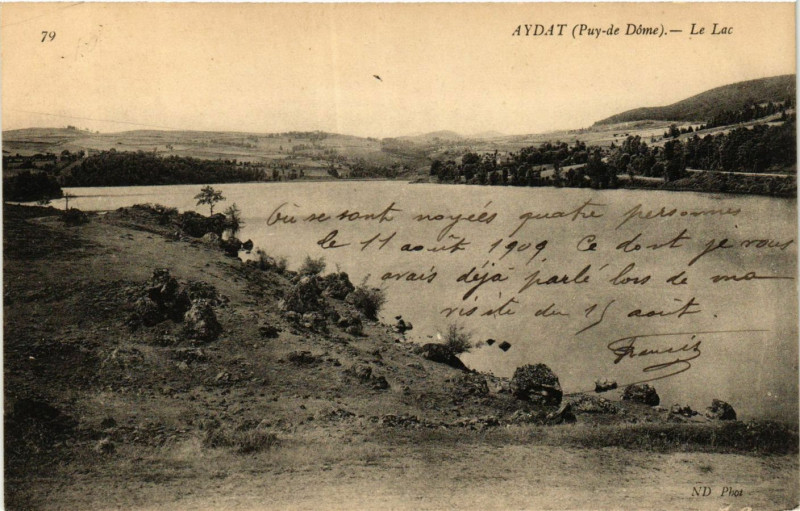 79
AYDAT (Puy-de Dôme).— Le Lac
Où se sont noyées quatre personnes
le 11 août 1909 Ce dont je vous
avais déjà parlé lors de ma
visite du 15 août.
Francis
ND Phot